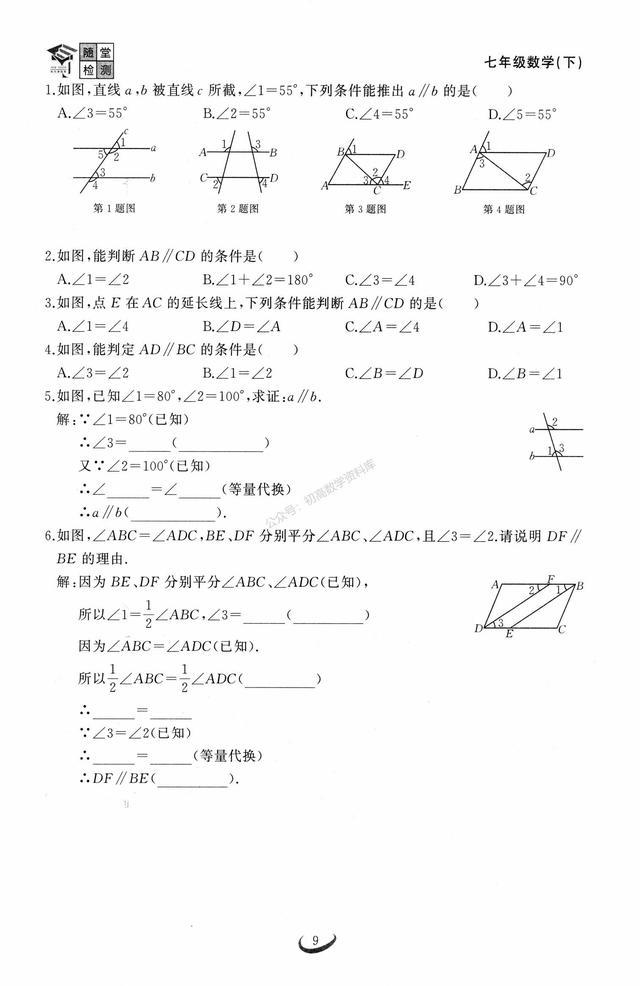 随堂
检测
七年级数学(下)
1.如图,直线a,b被直线c所截,∠1=55°,下列条件能推出a∥b的是( )
A.∠3=55° B.∠2=55° C.∠4=55° D.∠5=55°
c
1 a
5 2
3 b
4
第1题图
1 3
A B
C D
2 4
第2题图
B 1 D
A 3 2 4 E
C
第3题图
A 1 D
3
2
B C
第4题图
2.如图,能判断AB∥CD的条件是( )
A.∠1=∠2 B.∠1+∠2=180° C.∠3=∠4 D.∠3+∠4=90°
3.如图,点E在AC的延长线上,下列条件能判断AB∥CD的是( )
A.∠1=∠4 B.∠D=∠A C.∠A=∠4 D.∠A=∠1
4.如图,能判定AD∥BC的条件是( )
A.∠3=∠2 B.∠1=∠2 C.∠B=∠D D.∠B=∠1
5.如图,已知∠1=80°,∠2=100°,求证:a∥b.
解:∵∠1=80°(已知)
∴∠3=____(__________)
又∵∠2=100°(已知)
∴∠____=∠____(等量代换)
∴a∥b(__________).
a 2
b 1 3
公众号:初高数学资料库
6.如图,∠ABC=∠ADC,BE、DF分别平分∠ABC、∠ADC,且∠3=∠2.请说明DF∥
BE的理由.
解:因为BE、DF分别平分∠ABC、∠ADC(已知),
所以∠1=1/2∠ABC,∠3=____(________)
因为∠ABC=∠ADC(已知).
所以1/2∠ABC=1/2∠ADC(________)
∴____=____
∵∠3=∠2(已知)
∴____=____(等量代换)
∴DF∥BE(________).
A F B
2 1
D 3 E C
9